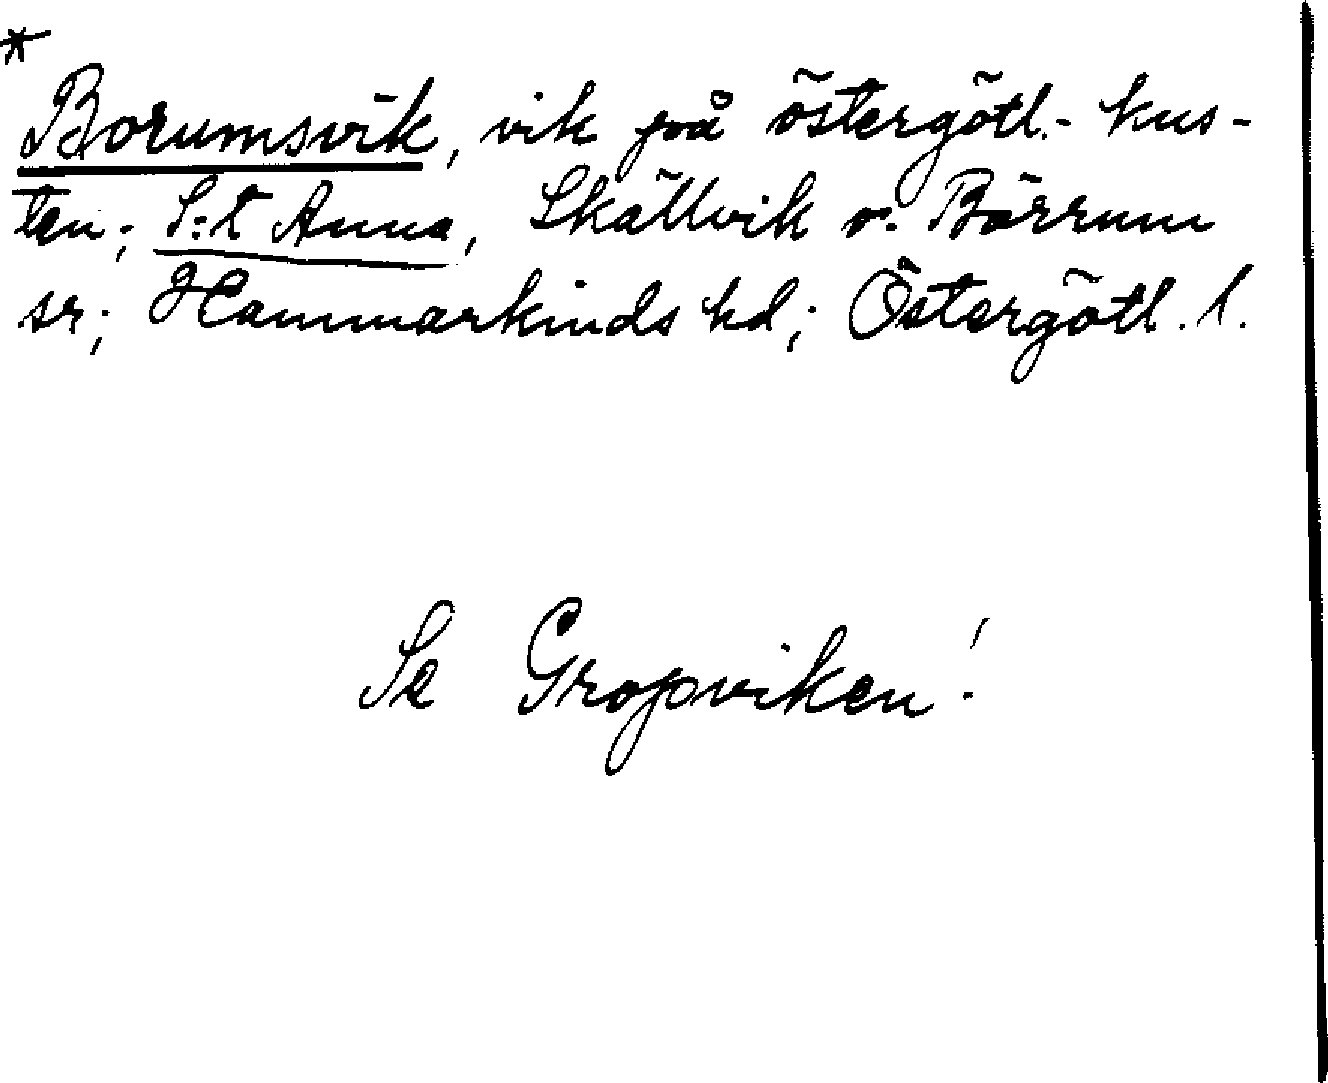 *
Borumsvik, vik på östergötl.- kus-
ten; S:t Anna, Skällvik o. Börrum
sr; Hammarkinds hd; Östergötl. l.
Se Gropviken!